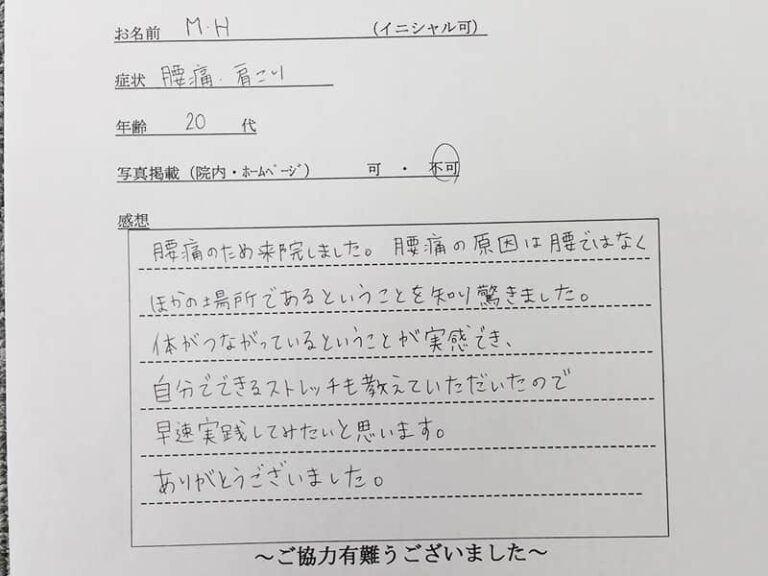 お名前 M.H (イニシャル可)
症状 腰痛.肩こり
年齢 20 代
写真掲載(院内・ホームページ) 可 ・ 不可
感想
腰痛のため来院しました。腰痛の原因は腰ではなく
ほかの場所であるということを知り驚きました。
体がつながっているということが実感でき、
自分でできるストレッチも教えていただいたので
早速実践してみたいと思います。
ありがとうございました。
～ご協力有難うございました～